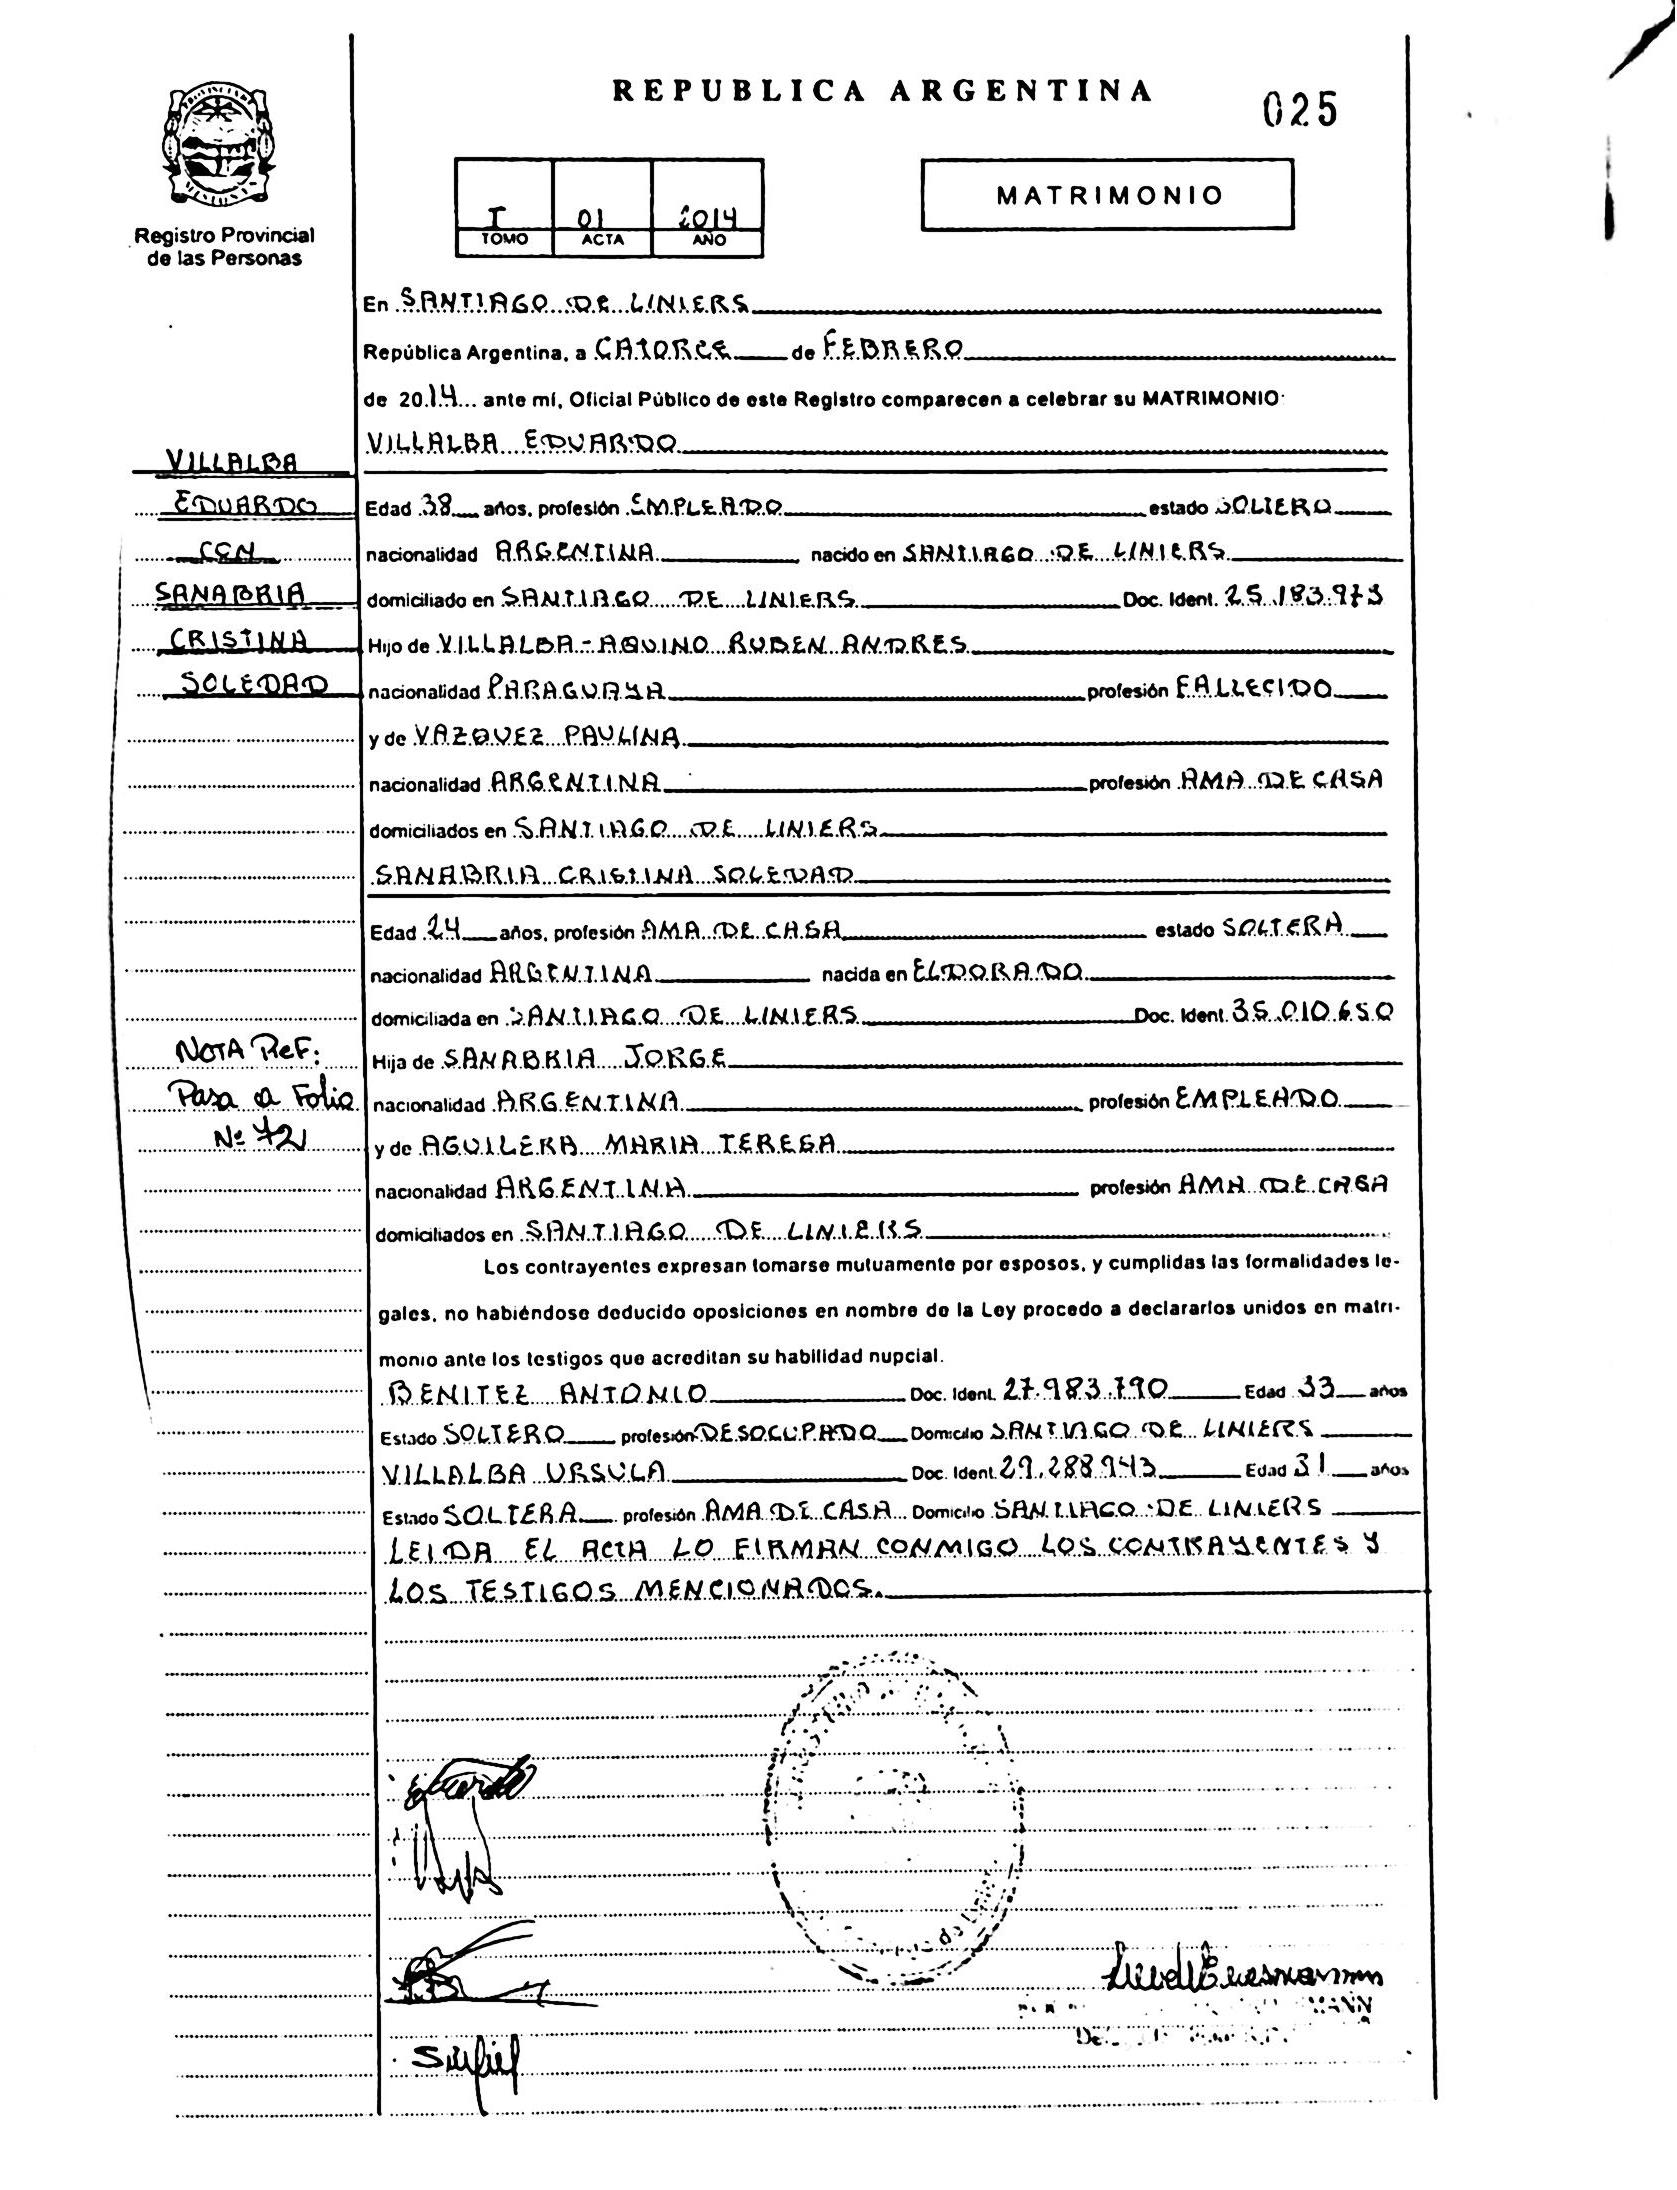 REPUBLICA ARGENTINA
025
I 01 2014
TOMO ACTA AÑO
MATRIMONIO
Registro Provincial
de las Personas
En SANTIAGO DE LINIERS
República Argentina, a CATORCE de FEBRERO
de 2014 ante mí, Oficial Público de este Registro comparecen a celebrar su MATRIMONIO:
VILLALBA EDUARDO
VILLALBA
EDUARDO
CON
SANABRIA
CRISTINA
SOLEDAD
Edad 38 años, profesión EMPLEADO estado SOLTERO
nacionalidad ARGENTINA nacido en SANTIAGO DE LINIERS
domiciliado en SANTIAGO DE LINIERS Doc. Ident. 25.183.973
Hijo de VILLALBA-AQUINO RUBEN ANDRES
nacionalidad PARAGUAYA profesión FALLECIDO
y de VAZQUEZ PAULINA
nacionalidad ARGENTINA profesión AMA DE CASA
domiciliados en SANTIAGO DE LINIERS
SANABRIA CRISTINA SOLEDAD
Edad 24 años, profesión AMA DE CASA estado SOLTERA
nacionalidad ARGENTINA nacida en ELDORADO
domiciliada en SANTIAGO DE LINIERS Doc. Ident. 35.010.650
Hija de SANABRIA JORGE
nacionalidad ARGENTINA profesión EMPLEADO
y de AGUILERA MARIA TERESA
nacionalidad ARGENTINA profesión AMA DE CASA
domiciliados en SANTIAGO DE LINIERS
NOTA Ref:
Pasa a Folio
Nº 72
Los contrayentes expresan tomarse mutuamente por esposos, y cumplidas las formalidades le-
gales, no habiéndose deducido oposiciones en nombre de la Ley procedo a declararlos unidos en matri-
monio ante los testigos que acreditan su habilidad nupcial.
BENITEZ ANTONIO Doc. Ident. 27.983.790 Edad 33 años
Estado SOLTERO profesión DESOCUPADO Domicilio SANTIAGO DE LINIERS
VILLALBA URSULA Doc. Ident. 29.288.943 Edad 31 años
Estado SOLTERA profesión AMA DE CASA Domicilio SANTIAGO DE LINIERS
LEIDA EL ACTA LO FIRMAN CONMIGO LOS CONTRAYENTES Y
LOS TESTIGOS MENCIONADOS.